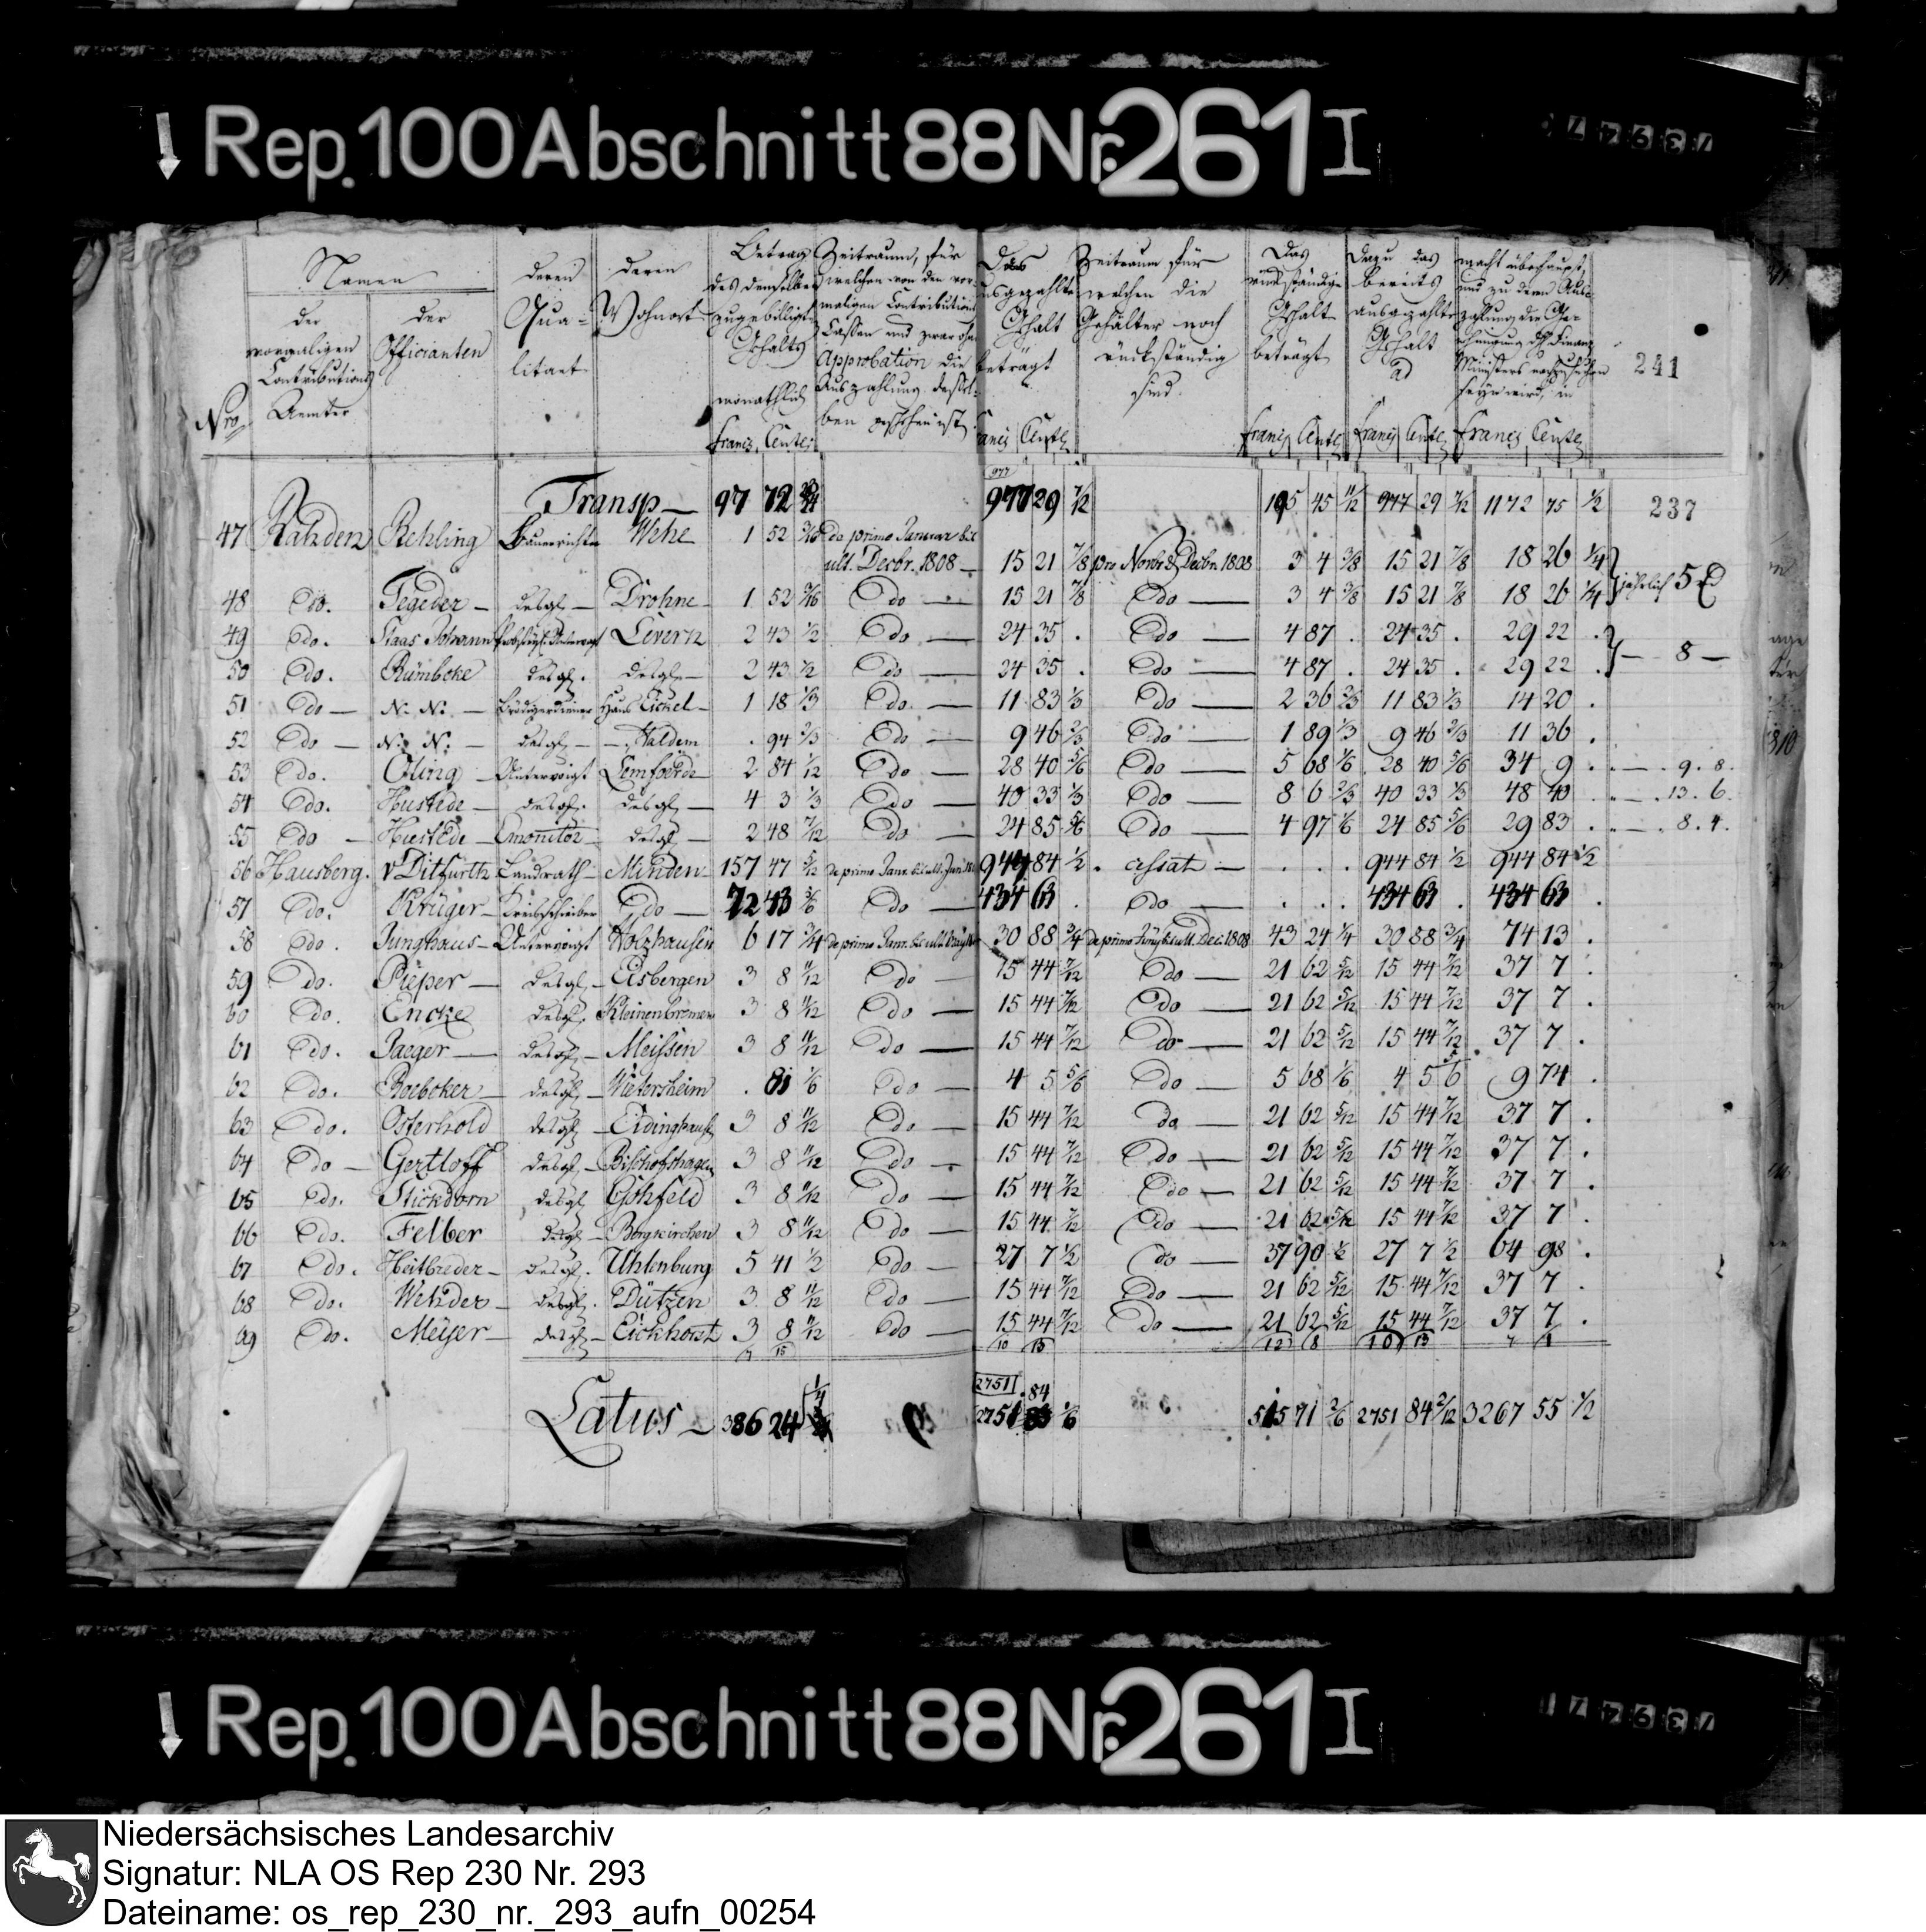 Rep. 100 Abschnitt 88 Nr. 261 I
Namen
der vormaligen Contributions Aemter
der Officianten
deren Qualitaet
deren Wohnort
Betrag des denselben zugebilligten Gehalts monathlich
Francs Cents
Zeitraum, für welchen von den vormaligen Contributions Cassen und zwar ohne Approbation die Auszahlung desselben geschehen ist
Das ausgezahlte Gehalt beträgt
Francs Cents
Zeitraum für welchen die Gehälter noch rückständig sind
Das rückständige Gehalt beträgt
Francs Cents
Dazu das bereits ausgezahlte Gehalt ad
Francs Cents
macht überhaupt, und zu deren Auszahlung die Genehmigung des Finanz Ministers nachzusuchen seyn wird, in
Francs Cents
241
Nro
Transp 97 72 977 29 7/12 195 45 11/12 977 29 7/12 1172 75 1/2 237
47 Rahden Rehling Bauerrichter Wehe 1 52 3/16 de primo Januar bis ult. Decbr. 1808 15 21 7/8 pro Novbr & Decbr. 1808 3 4 3/8 15 21 7/8 18 26 1/4 jährlich 5
48 do. Tegeder desgl Drohne 1 52 3/16 do 15 21 7/8 do 3 4 3/8 15 21 7/8 18 26 1/4
49 do. Staas Johann Levern 2 43 1/2 do 24 35 . do 4 87 . 24 35 . 29 22 . 8
50 do. Rümbcke desgl. desgl 2 43 1/2 do 24 35 . do 4 87 . 24 35 . 29 22 .
51 do N. N. Predigerdiener Haus Eickel 1 18 1/3 do. 11 83 1/3 do 2 36 2/3 11 83 1/3 14 20 .
52 do N. N. desgl Haldem . 94 2/3 do 9 46 2/3 do 1 89 1/3 9 46 2/3 11 36 .
53 do. Oling Untervoigt Lemförde 2 84 1/12 do 28 40 5/6 do 5 68 1/6 28 40 5/6 34 9 . 9. 8.
54 do. Hustede desgl. desgl 4 3 1/3 do 40 33 1/3 do 8 6 2/3 40 33 1/3 48 40 . 13. 6.
55 do Hustede Emonitor desgl 2 48 7/12 do 24 85 5/6 do 4 97 1/6 24 85 5/6 29 83 . 8. 4.
56 Hausberg. v Ditfurth Landrath Minden 157 47 5/12 de primo Janr. bis ult. Juni 944 84 1/2 . cessat . . . 944 84 1/2 944 84 1/2
57 do. Krüger Kreisschreiber do 72 43 5/6 do 434 63 . do . . . 434 63 . 434 63 .
58 do. Junghaus Untervoigt Holzhausen 6 17 3/4 de primo Janr. bis ult. May 30 88 3/4 de primo Juny bis ult. Dec. 1808 43 24 1/4 30 88 3/4 74 13 .
59 do. Pieper desgl Eisbergen 3 8 11/12 do 15 44 7/12 do 21 62 5/12 15 44 7/12 37 7 .
60 do. Encke desgl. Kleinenbremen 3 8 11/12 do 15 44 7/12 do 21 62 5/12 15 44 7/12 37 7 .
61 do. Jaeger desgl Meissen 3 8 11/12 do 15 44 7/12 do 21 62 5/12 15 44 7/12 37 7 .
62 do. Boebcker desgl Wietersheim . 81 1/6 do 4 5 5/6 do 5 68 1/6 4 5 5/6 9 74 .
63 do. Osterhold desgl Eidinghausen 3 8 11/12 do 15 44 7/12 do 21 62 5/12 15 44 7/12 37 7 .
64 do Gertloff desgl Bischofshagen 3 8 11/12 do 15 44 7/12 do 21 62 5/12 15 44 7/12 37 7 .
65 do. Stickdorn desgl Gohfeld 3 8 11/12 do 15 44 7/12 do 21 62 5/12 15 44 7/12 37 7 .
66 do. Felber desgl Bergkirchen 3 8 11/12 do 15 44 7/12 do 21 62 5/12 15 44 7/12 37 7 .
67 do. Heitbreder desgl. Uhlenburg 5 41 1/2 do 27 7 1/2 do 37 90 1/2 27 7 1/2 64 98 .
68 do. Wehder desgl. Dützen 3 8 11/12 do 15 44 7/12 do 21 62 5/12 15 44 7/12 37 7 .
69 do. Meyer desgl Eickhorst 3 8 11/12 do 15 44 7/12 do 21 62 5/12 15 44 7/12 37 7 .
Latus 386 24 2751 84 1/6 515 71 2/6 2751 84 2/12 3267 55 1/2
Rep. 100 Abschnitt 88 Nr. 261 I
Niedersächsisches Landesarchiv
Signatur: NLA OS Rep 230 Nr. 293
Dateiname: os_rep_230_nr._293_aufn_00254